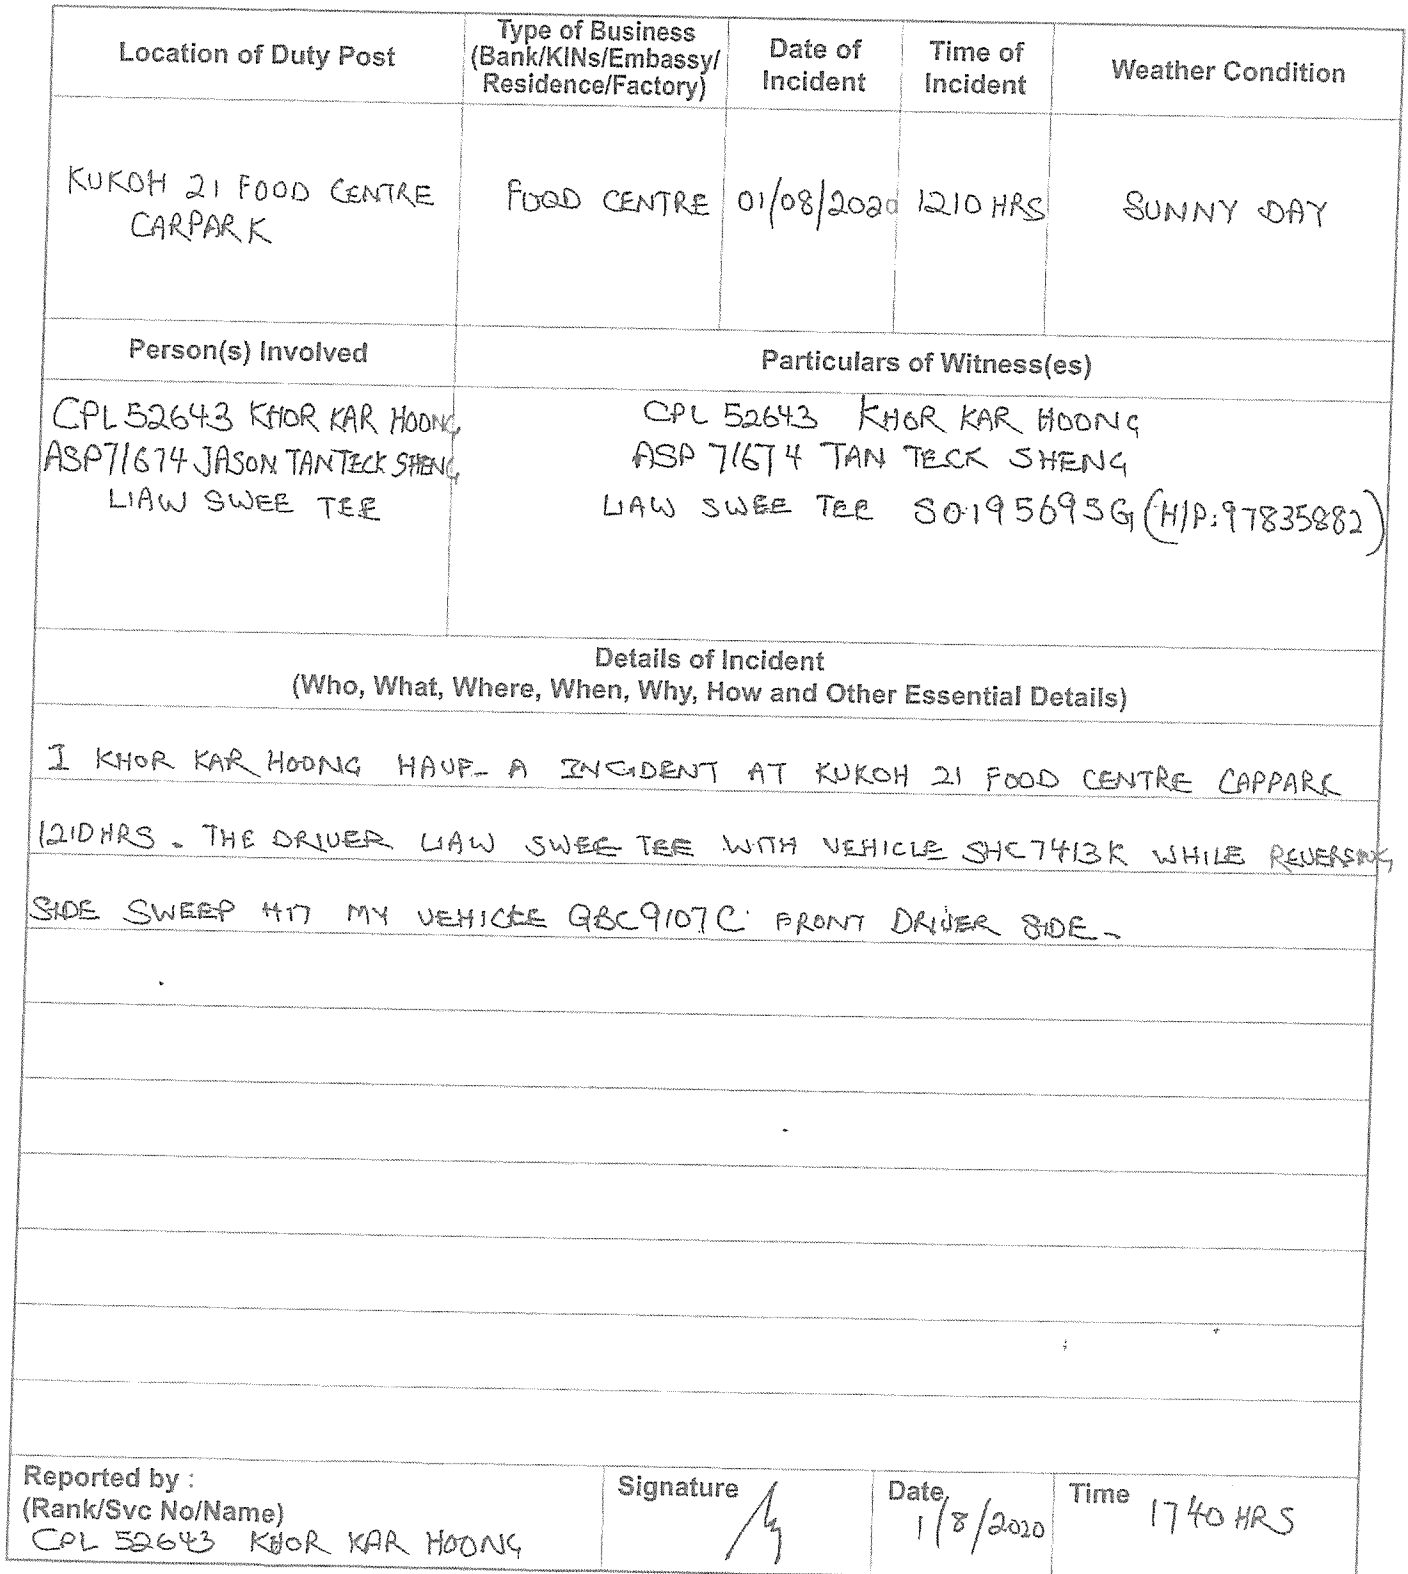 Location of Duty Post
Type of Business
(Bank/KINs/Embassy/
Residence/Factory)
Date of
Incident
Time of
Incident
Weather Condition
KUKOH 21 FOOD CENTRE
CARPARK
FOOD CENTRE
01/08/2020
1210 HRS
SUNNY DAY
Person(s) Involved
Particulars of Witness(es)
CPL 52643 KHOR KAR HOONG
ASP71674 JASON TAN TECK SHENG
LIAW SWEE TEE
CPL 52643 KHOR KAR HOONG
ASP 71674 TAN TECK SHENG
LIAW SWEE TEE S0195695G (H/P:97835882)
Details of Incident
(Who, What, Where, When, Why, How and Other Essential Details)
I KHOR KAR HOONG HAVE A INCIDENT AT KUKOH 21 FOOD CENTRE CAPPARK
1210HRS. THE DRIVER LIAW SWEE TEE WITH VEHICLE SHC7413K WHILE REVERSING
SIDE SWEEP HIT MY VEHICLE GBC9107C FRONT DRIVER SIDE.
Reported by :
(Rank/Svc No/Name)
CPL 52643 KHOR KAR HOONG
Signature
Date
1/8/2020
Time
1740 HRS